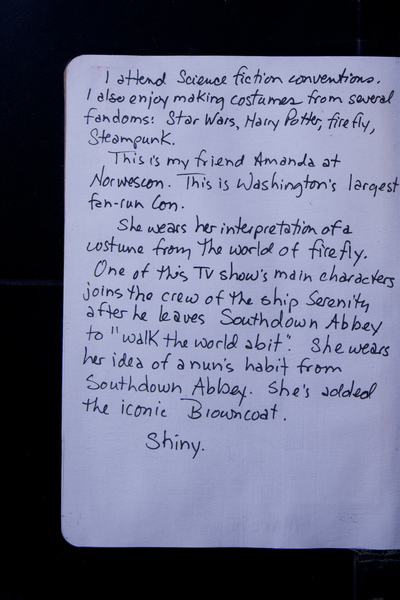 I attend Science fiction conventions.
I also enjoy making costumes from several
fandoms: Star Wars, Harry Potter, firefly,
Steampunk.
This is my friend Amanda at
Norwescon. This is Washington's largest
fan-run Con.
She wears her interpretation of a
costume from the world of firefly.
One of this TV show's main characters
joins the crew of the ship Serenity
after he leaves Southdown Abbey
to "walk the world abit". She wears
her idea of a nun's habit from
Southdown Abbey. She's added
the iconic Browncoat.
Shiny.